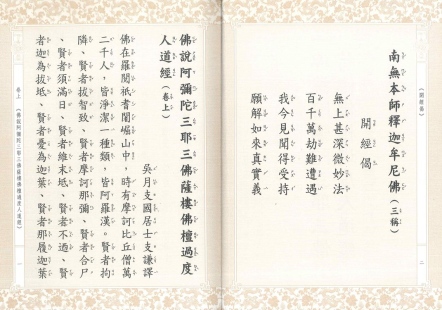 南無本師釋迦牟尼佛（三稱）
開經偈
無上甚深微妙法
百千萬劫難遭遇
我今見聞得受持
願解如來真實義
佛說阿彌陀三耶三佛薩樓佛檀過度
人道經（卷上）
吳月支國居士支謙譯
佛在羅閱祇耆闍崛山中，時有摩訶比丘僧萬
二千人，皆淨潔一種類，皆阿羅漢。賢者拘
隣、賢者拔智致、賢者摩訶那彌、賢者合尸
、賢者須滿日、賢者維末坻、賢者不迺、賢
者迦為拔坻、賢者憂為迦葉、賢者那履迦葉